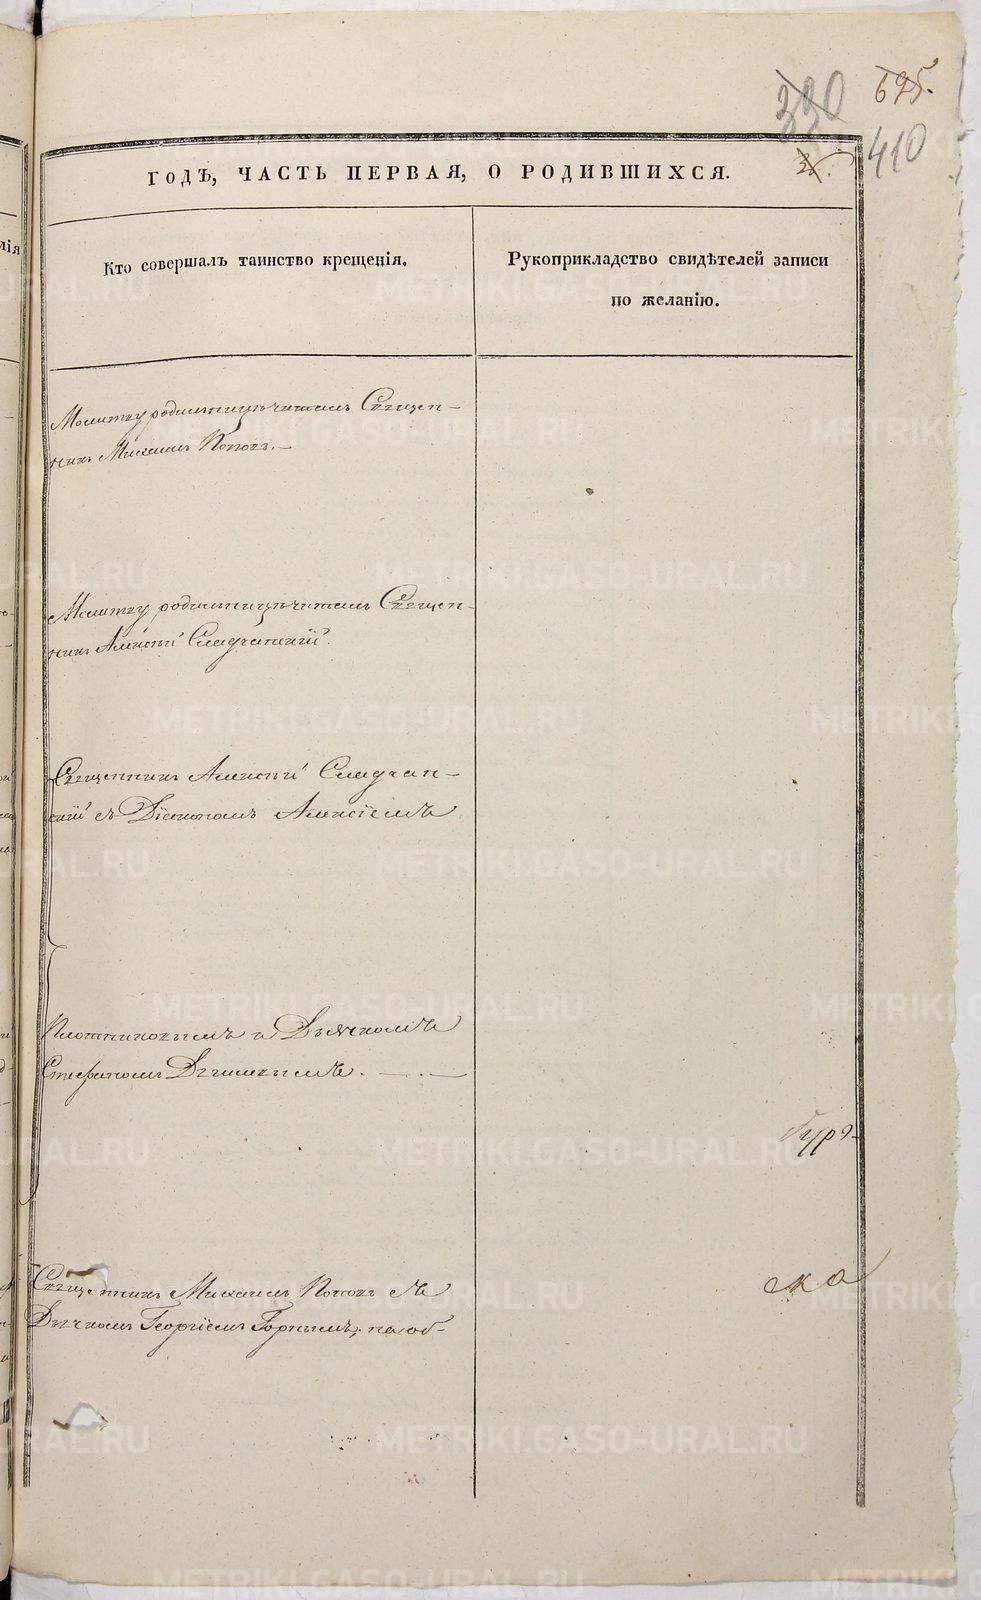 390
695.
410
ГОДЪ, ЧАСТЬ ПЕРВАЯ, О РОДИВШИХСЯ.
Кто совершалъ таинство крещенія.
Рукоприкладство свидѣтелей записи
по желанію.
Молитву родильницѣ читалъ Священ-
никъ Михаилъ Поповъ.
Молитву родильницѣ читалъ Священ-
никъ Алексѣй
Священникъ Алексѣй
скій съ Діакономъ Алексіемъ
Плотниковымъ и Дьячкомъ
Стефаномъ
Священникъ Михаилъ Поповъ съ
Дьячкомъ Георгіемъ Горнымъ; на об-
METRIKI.GASO-URAL.RU